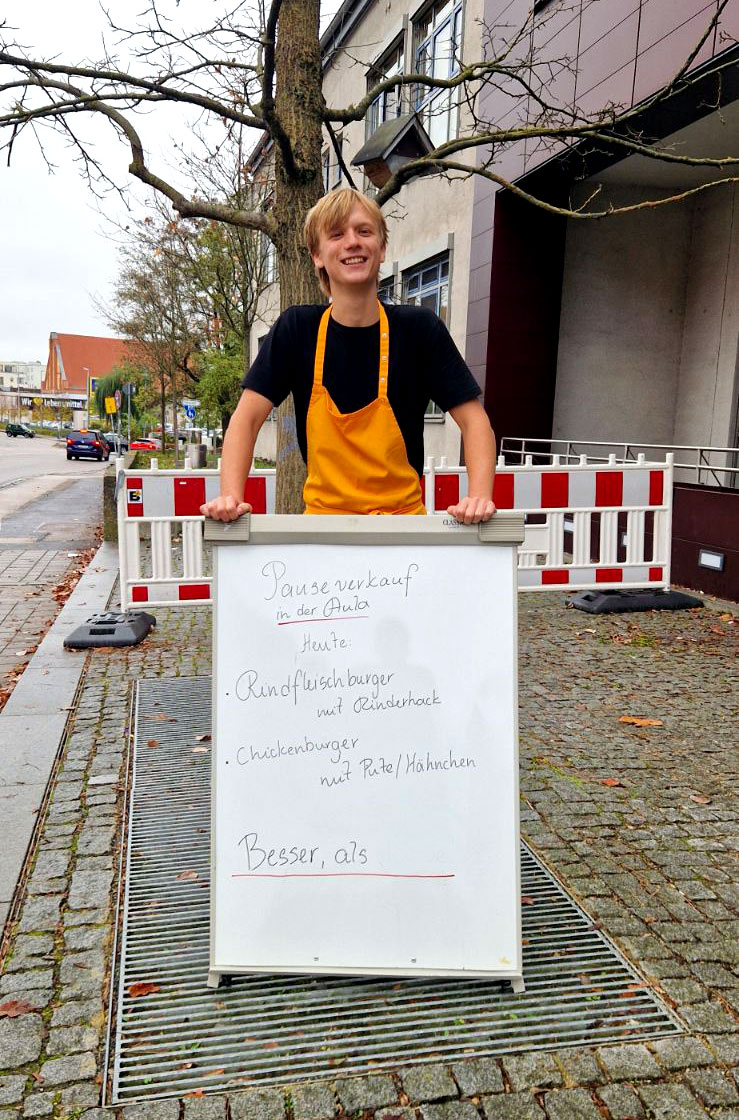 Wir Lebensmittel.
CLASSIC
Pauseverkauf
in der Aula
Heute:
· Rindfleischburger
mit Rinderhack
· Chickenburger
mit Pute/Hähnchen
Besser, als